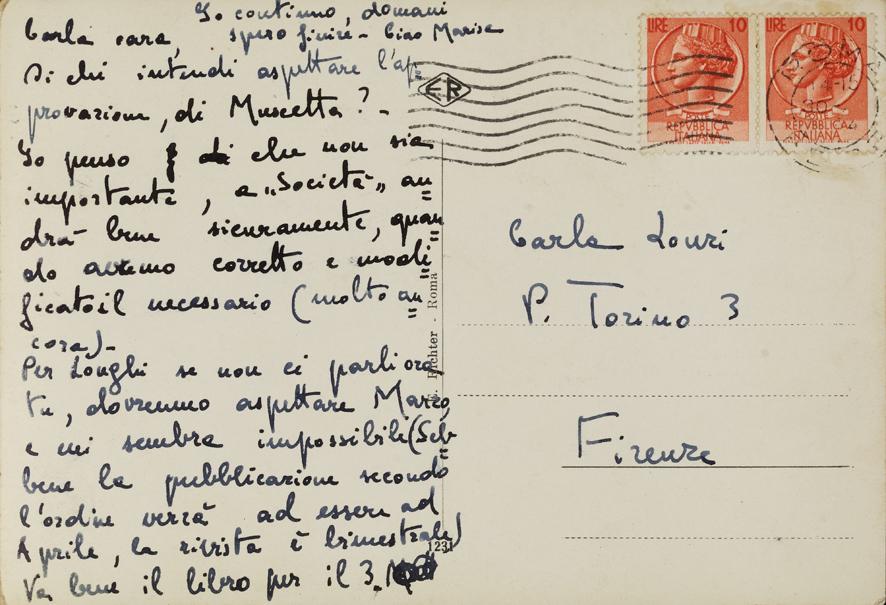 Io continuo, domani
spero finire - Ciao Marisa
Carla cara,
Di chi intendi aspettare l'ap=
provazione, di Muscetta? -
Io penso di che non sia
importante, a "Società" an=
drà bene sicuramente, quan=
do avremo corretto e modi=
ficato il necessario (molto an=
cora). -
Per Longhi se non ci parli ora
tu, dovremmo aspettare Marzo,
e mi sembra impossibile (Seb=
bene la pubblicazione secondo
l'ordine verrà ad essere ad
Aprile, la rivista è bimestrale)
Va bene il libro per il 3.
ER
Richter - Roma
1231
LIRE 10
REPVBBLICA
ITALIANA
LIRE 10
REPVBBLICA
ITALIANA
ROMA
Carla Lonzi
P. Torino 3
Firenze